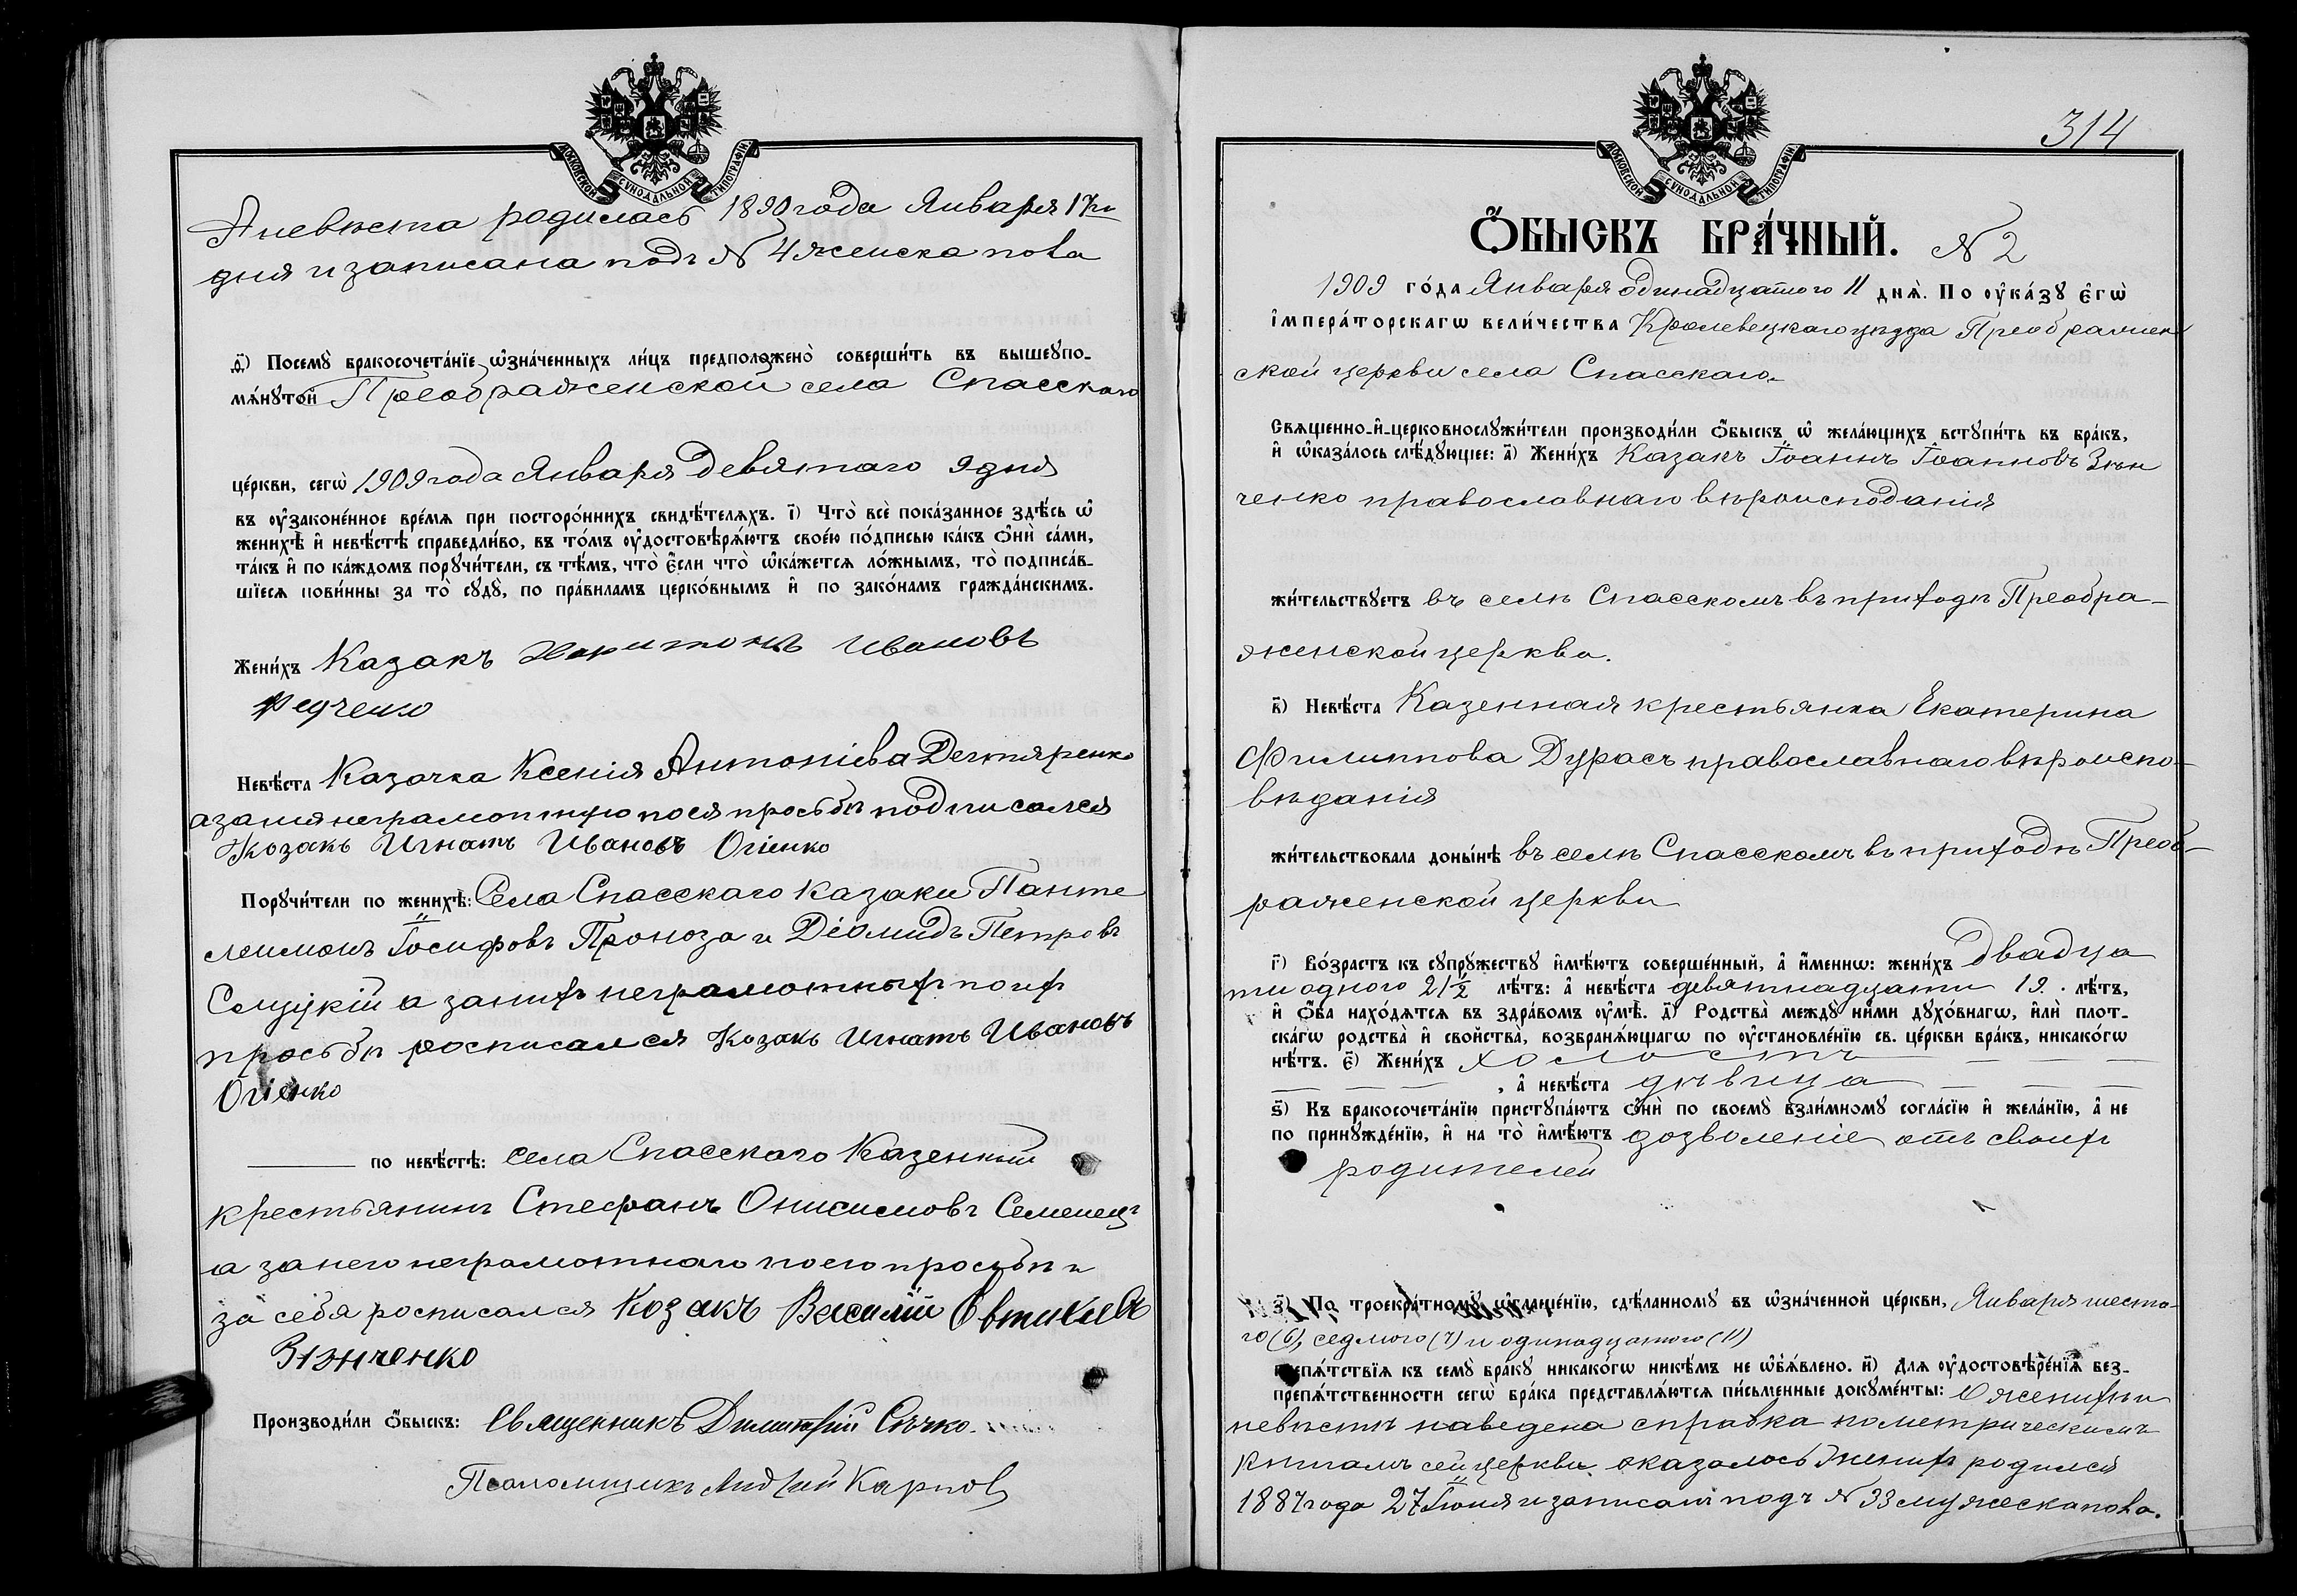 МОСКОВСКОЙ СѴНОДАЛЬНОЙ ТИПОГРАФІИ
А невѣста родилась 1890 года Января 17го
дня и записана подъ № 4 женска пола
д҃) Посемꙋ̀ бракосочета́нїе ѡ҆зна́ченныхъ ли́цъ предположено̀ соверши́ть въ вышеꙋпо-
мѧ́нꙋтой Преображенской села Спасского
це́ркви, сегѡ̀ 1909 года Января Девятаго 9 дня
въ ᲂу҆законе́нное вре́мѧ при посторо́ннихъ свидѣ́телѧхъ. і҃) Что̀ всѐ пока́занное здѣ́сь ѡ҆
женихѣ̀ и҆ невѣ́стѣ справедли́во, въ то́мъ ᲂу҆достовѣрѧ́ютъ свое́ю по́дписью ка́къ ѻ҆нѝ са́ми,
та́къ и҆ по ка́ждомъ порꙋчи́тели, съ тѣ́мъ, что̀ є҆́сли что̀ ѡ҆ка́жетсѧ ло́жнымъ, то̀ подписа́в-
шїесѧ пови́нны за то̀ сꙋдꙋ̀, по пра́виламъ церко́внымъ и҆ по зако́намъ гражда́нскимъ.
Жени́хъ Казакъ Харитонъ Ивановъ
Федченко
Невѣ́ста Казачка Ксенія Антоніева Дегтяренко
а за нея неграмотную по ея просьбѣ подписался
Козакъ Игнатъ Ивановъ Огіенко
Порꙋчи́тели по женихѣ̀: Села Спасского казаки Панте
леимонъ Іосифовъ Проноза и Діомидъ Петровъ
а за нихъ неграмотныхъ по ихъ
просьбѣ росписался Козакъ Игнатъ Ивановъ
Огіенко
по невѣ́стѣ: села Спасского Казенный
крестьянинъ Стефанъ Онисимовъ Семенецъ
а за него неграмотнаго по его просьбѣ и
за себя росписался Козакъ Василій Овтиківъ
Зѣнченко
Производи́ли ѻ҆́быскъ: Священникъ Димитрій Сѣчко.
Псаломщикъ Андрей Карпов
МОСКОВСКОЙ СѴНОДАЛЬНОЙ ТИПОГРАФІИ
314
Ѻ҆́БЫСКЪ БРА́ЧНЫЙ. № 2
1909 го́да Января одинадцатого 11 днѧ̀. По ᲂу҆ка́зꙋ є҆гѡ̀
і҆мпера́торскагѡ вели́чества Кролевецкаго уѣзда Преображен
ской церкви села Спасскаго
Свѧще́нно-и҆-церковнослꙋжи́тели производи́ли ѻ҆́быскъ ѡ҆ жела́ющихъ встꙋпи́ть въ бра́къ,
и҆ ѡ҆каза́лось слѣ́дꙋющее: а҃) Жени́хъ Казакъ Іоаннъ Іоанновъ Зѣн
ченко православнаго вѣроисподанія
жи́тельствꙋетъ въ селѣ Спасскомъ въ приходѣ Преобра-
женской церкви.
в҃) Невѣ́ста Казенная крестьянка Екатерина
Филиппова Дурасъ православнаго вѣроиспо-
вѣданія
жи́тельствовала доны́нѣ въ селѣ Спасскомъ въ приходѣ Преоб-
раженской церкви
г҃) Во́зрастъ къ сꙋпрꙋ́жествꙋ и҆мѣ́ютъ соверше́нный, а҆ и҆́меннѡ: жени́хъ двадца
ти одного 21½ лѣ́тъ: а҆ невѣ́ста девятнадцати 19. лѣ́тъ,
и҆ ѻ҆́ба нахо́дѧтсѧ въ здра́вомъ ᲂу҆мѣ̀. д҃) Родства̀ междꙋ̀ ни́ми дꙋхо́внагѡ, и҆лѝ плот-
ска́гѡ родства̀ и҆ сво́йства̀, возбранѧ́ющагѡ по ᲂу҆становле́нїю св. це́ркви бра́къ, никако́гѡ
нѣ́тъ. є҃) Жени́хъ холостъ
, а҆ невѣ́ста дѣвица
ѕ҃) Къ бракосочета́нїю пристꙋпа́ютъ ѻ҆нѝ по своемꙋ̀ взаи́мномꙋ согла́сїю и҆ жела́нїю, а҆ не
по принꙋжде́нїю, и҆ на то̀ и҆мѣ́ютъ дозволеніе отъ своихъ
родителей
з҃) По троекра́тномꙋ ѡ҆глаше́нїю, сдѣ́ланномꙋ въ ѡ҆зна́ченной це́ркви, Января шесто-
го (6), седмого (7) и одинадцатого (11)
препѧ́тствїѧ къ семꙋ̀ бра́кꙋ никако́гѡ никѣ́мъ не ѡ҆б̾ѧ́влено. и҃) Длѧ ᲂу҆достовѣре́нїѧ без-
препѧ́тственности сегѡ̀ бра́ка представлѧ́ютсѧ пи́сьменные докꙋме́нты: О женихѣ и
невѣстѣ наведена справка по метрическимъ
книгамъ сей церкви оказалось женихъ родился
1887 года 27 Іюня и записанъ подъ № 33 мужеска пола.